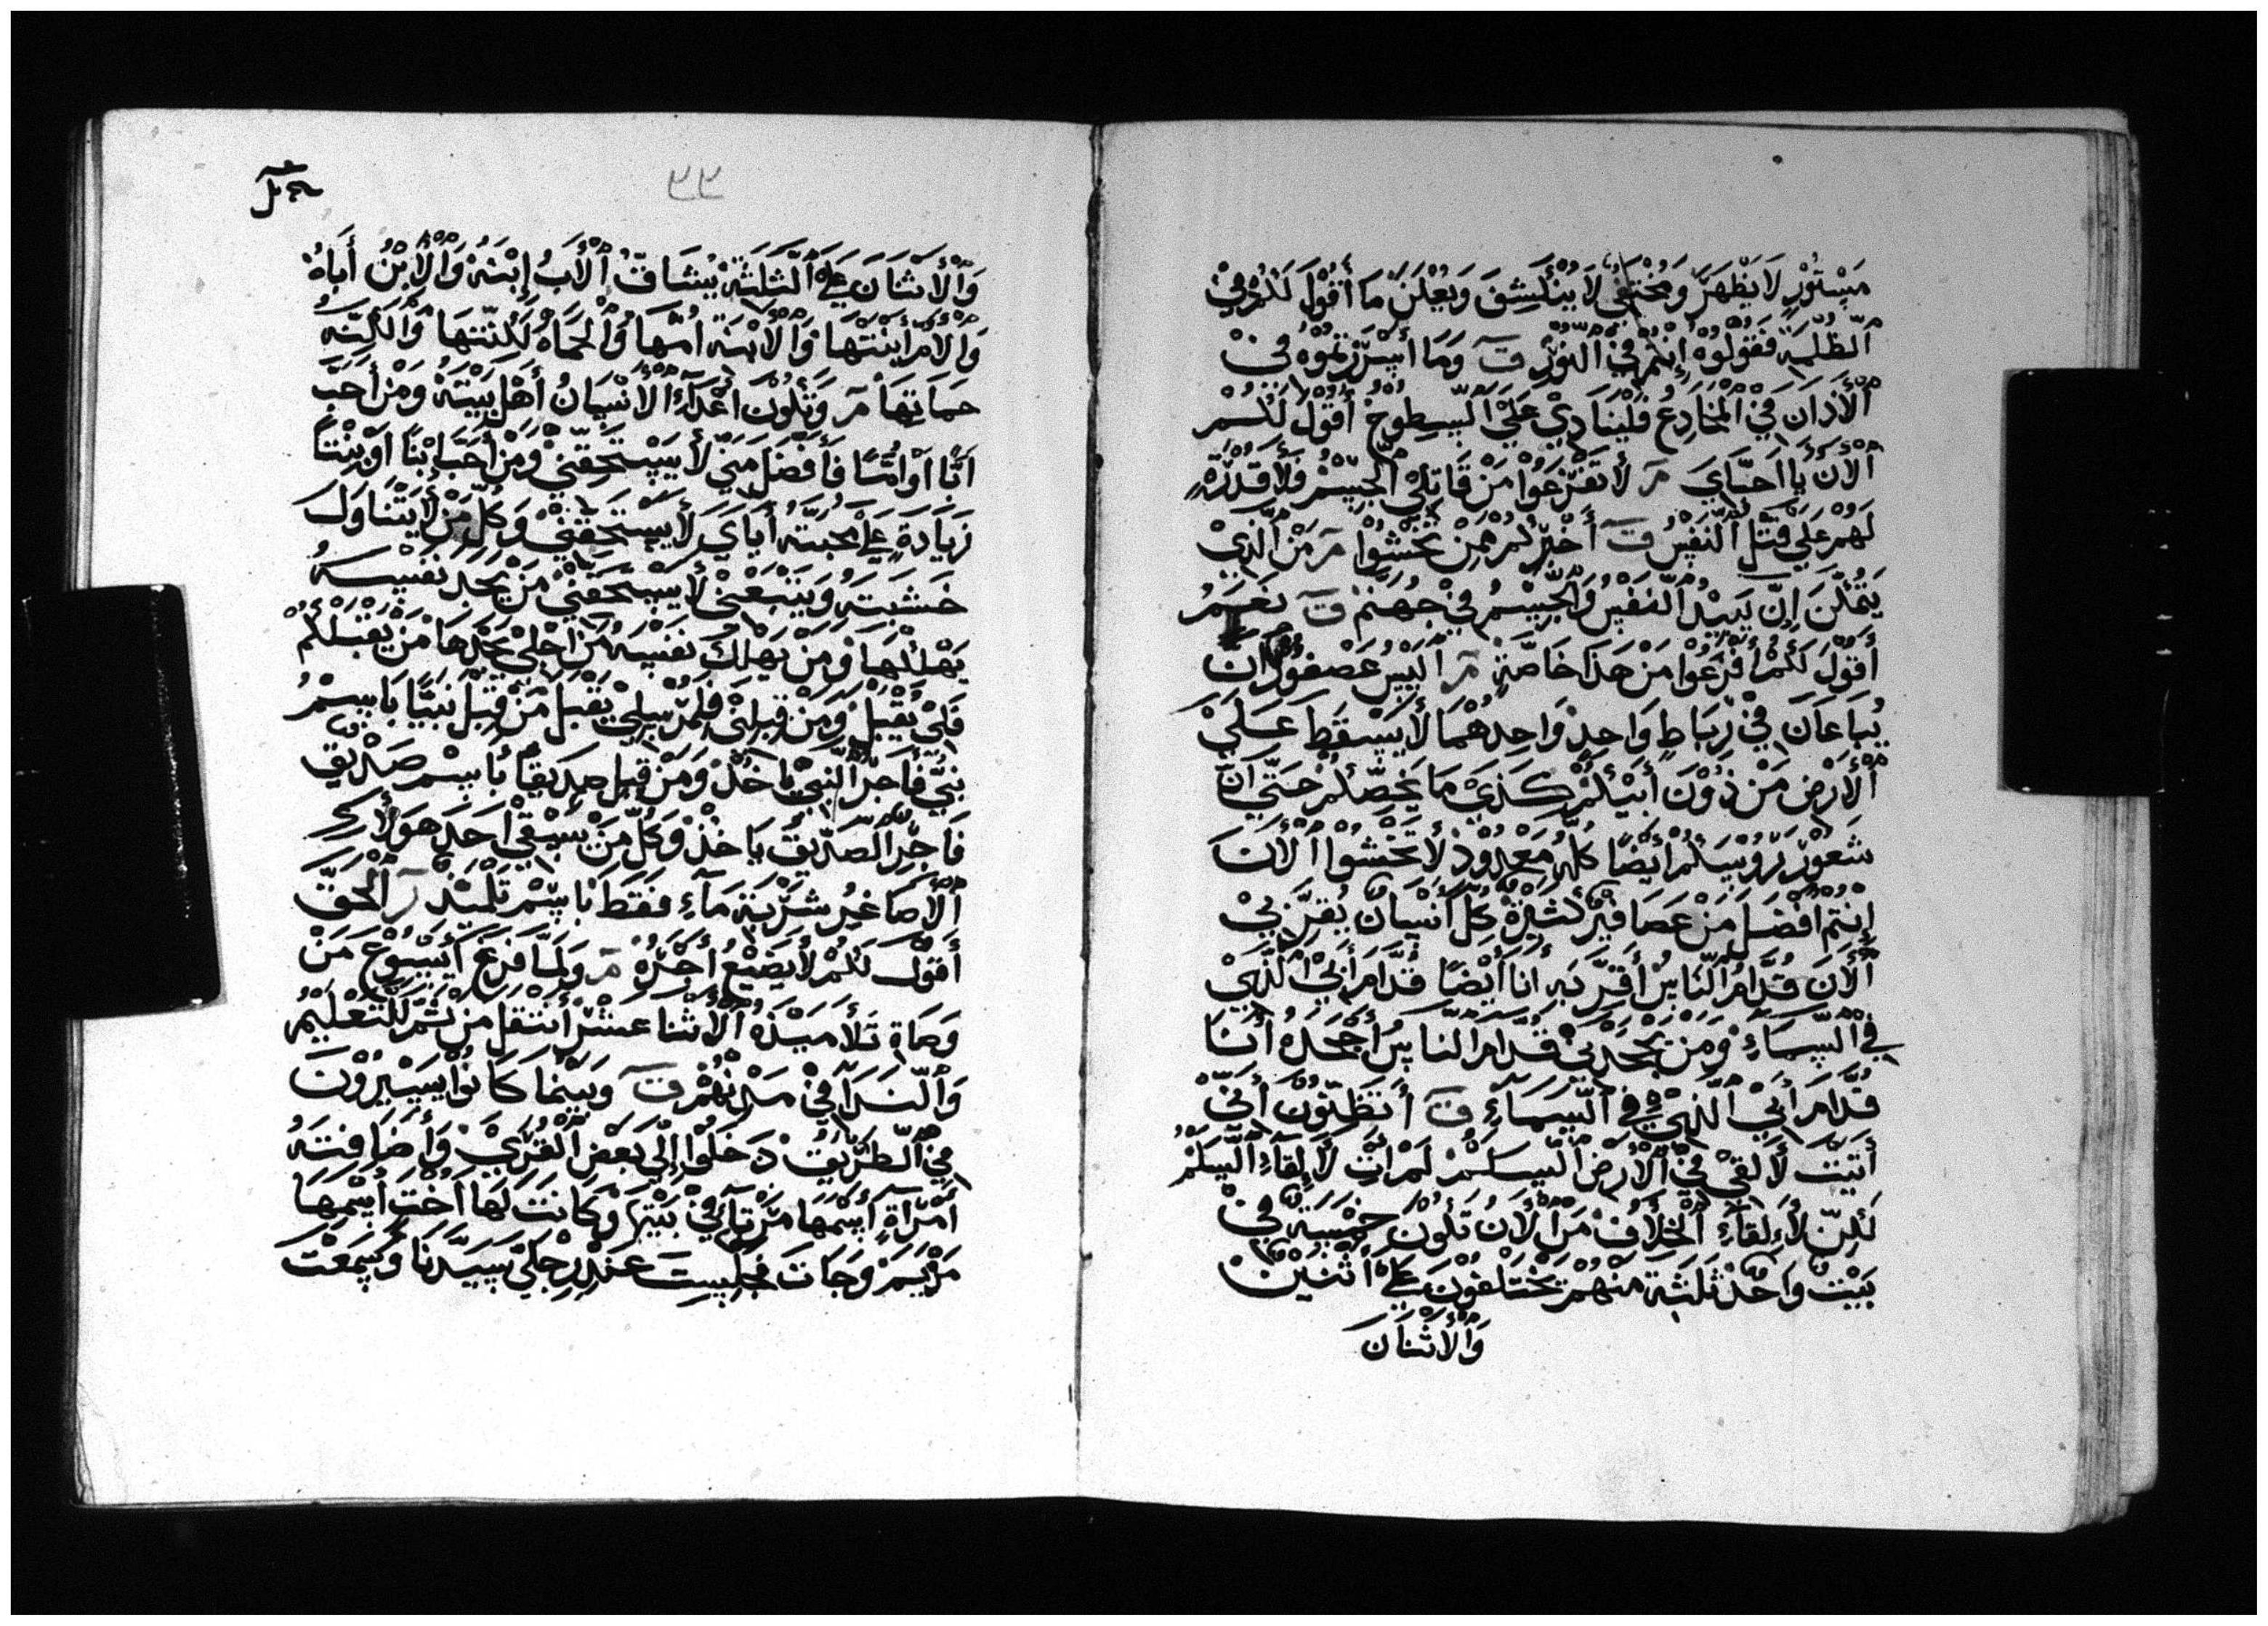 مستورٍ لا يظهرَّ ومختفى لا ينكشف ويعلن ما أقول لكم في
ألظلمة فقولوه إنتم في ألنور ق وما أسررتموه في
ألاذان في المخادع فلينادي علي السطوح أقول لكم
ألان يا احباي م لا تفزعوا من قاتلي الجسم فلا قدرة
لهم علي قتل النفس ق أخبركم من تخشوا م من الذي
يمكن إن يبد النفس والجسم في جهنم ق نعم
أقول لكم أفزعوا من هذا خاصة م اليس عصفوران
يباعان في رباط واحد وواحدهما لا يسقط علي
ألارض من دون أبيكم كذي ما يخصكم حتي ان
شعور روسكم أيضا كله معدود لا تخشوا الان
إنتم أفضل من عصافير كثيرة كل أنسان يقر بي
ألان قدام الناس أقر به انا أيضا قدام أبي الذي
في السماء ومن يجحدني قدام الناس أجحده أنا
قدام أبي الذي في السماء ق أتظنون أني
أتيت لالقي في ألارض السلم لم ات لالقاء السلم
لكن لالقاء الخلاف من الان تكون خمسة في
بيت واحد ثلثة منهم تختلفون علي أثنين
والاثنان
٣٣
والاثنان علي الثلثة يشاق الأب إبنه والابن أباه
والام أبنتها والابنة امها والحماة لكنتها والكنة
حماتها م وتكون أعداء الانسان أهل بيته ومن أحب
ابا أو اما فأفضل مني لا يستحقني ومن أحب ابنا أو بنتا
زيادة علي محبته أياي لا يستحقني وكل من لا يتناول
خشبته ويتبعني لا يستحقني من يجد نفسه
يهلكها ومن يهلك نفسه من اجلي يجدها من يقبلكم
فلي يقبل ومن قبلني فلمرسلي يقبل من قبل نبيا باسم
نبي فاجر النبي ياخذ ومن قبل صديقا باسم صديق
فاجر الصديق ياخذ وكل من يسقي احد هولاء
الاصاغر شربة ماء فقط باسم تلميذ الحق
أقول لكم لا يضيع أجره م ولما فرغ أيسوع من
وصاة تلاميذه الاثنا عشر أنتقل من ثم للتعليم
والندا في مدنهم ق وبينما كانوا يسيرون
في الطريق دخلوا إلي بعض القري وأضافته
أمرأة أسمها مرتا في بيتها وكانت لها اخت أسمها
مريم وجات فجلست عند رجلي سيدنا وسمعت